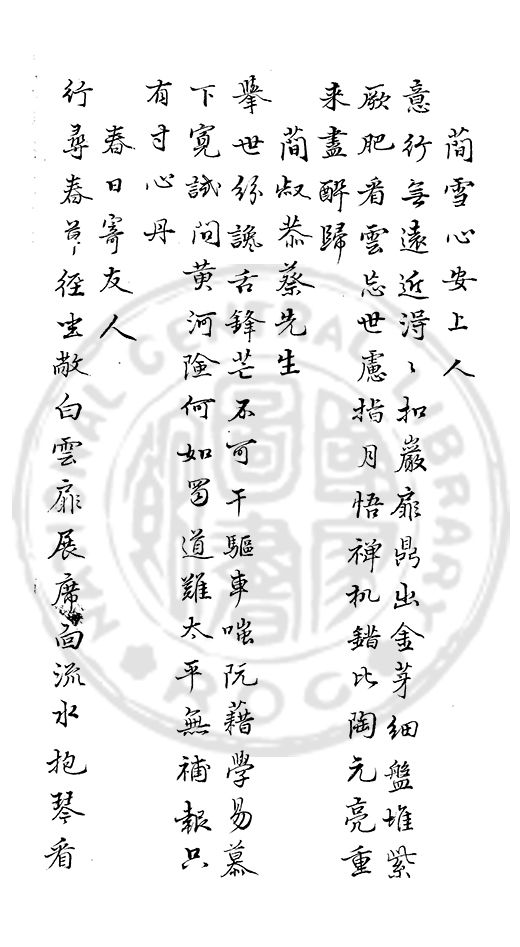 蕳雪心安上人
意行無遠近得〻扣巖扉鼎出金芽細盤堆紫
厥肥看雲忘世慮指月悟禅机錯比陶元亮重
来盡醉歸
蕳叔恭蔡先生
舉世紛讒舌鋒芒不可干驅車嗤阮藉學易慕
下寛試問黄河險何如蜀道難太平無補報只
有寸心丹
春日寄友人
行尋春草徑坐敞白雲扉展席面流水抱琴看
NATIONAL CENTRAL LIBRARY
R.O.C.